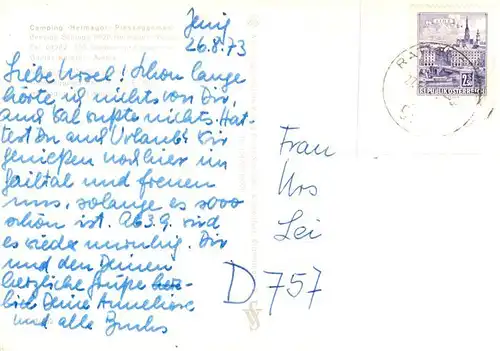 Camping "Hermagor-Pressegger
Jenig
26.8.73
Liebe Ursel! Schon lange
hörte ich nichts von Dir,
auch Gal wußte nichts. Hat-
test Du auch Urlaub? Wir
genießen noch hier im
Gailtal und freuen
uns, solange es sooo
schön ist. Ab 3.9. wird
es wieder unruhig. Dir
und den Deinen
herzliche Grüße
Deine Anneliese
und alle Buchs
Frau
Urs
Lei
D 757
2.50
REPUBLIK ÖSTERREICH
RA